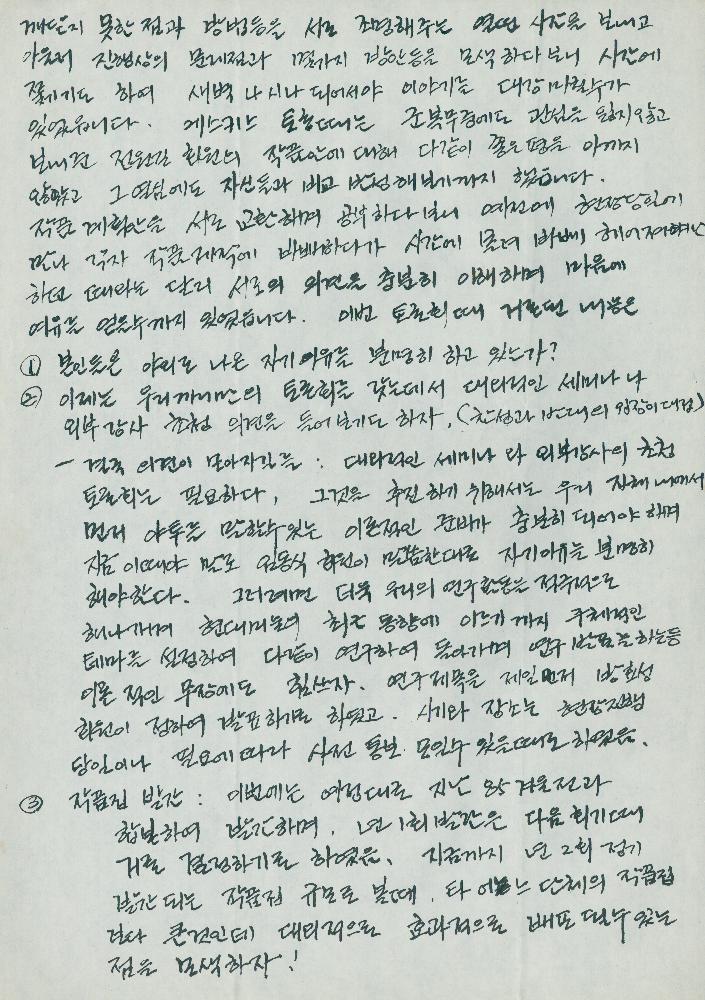 깨닫지 못한 점과 방법등을 서로 조명해주는 열띤 시간을 보내고
아울러 진행상의 문제점과 몇가지 방안등을 모색하다보니 시간에
쫓기기도 하여 새벽 나시나 되어서야 이야기는 대강 마칠수가
있었읍니다. 에스키스 토론때는 군복무중에도 관심을 잃지않고
보내준 전원길 회원의 작품안에 대해 다같이 좋은 평을 아끼지
않았고 그 열심에도 자신들과 비교 반성해보기까지 했읍니다.
작품 계획안을 서로 교환하며 공부하다보니 예전에 현장당일에
만나 각자 작품제작에 바빠하다가 시간에 몰려 바삐 헤어져야만
하던 때와는 달리 서로의 의견을 충분히 이해하며 마음에
여유를 얻을수까지 있었읍니다. 이번 토론회때 거론된 내용은
① 본인들은 야외로 나온 자기이유를 분명히 하고 있는가?
② 이제는 우리끼리만의 토론회를 갖는데서 대외적인 세미나 나
외부강사 초청 의견을 들어보기도 하자. (찬성과 반대의 입장이 대립)
- 결국 의견이 모아지길는 : 대외적인 세미나 와 외부강사의 초청
토론회는 필요하다, 그것을 추진하기 위해서는 우리 자체내에서
먼저 야투를 말할수있는 이론적인 준비가 충분히 되어야 하며
지금 이때야 말로 임동식 회원이 말씀한대로 자기이유를 분명히
해야한다. 그러려면 더욱 우리의 연구활동을 적극적으로
해나가며 현대미술의 최근 동향에 이르기 까지 구체적인
테마를 설정하여 다같이 연구하여 돌아가며 연구 발표를 하는등
이론 적인 무장에도 힘쓰자. 연구제목을 제일먼저 방효성
회원이 정하여 발표하기로 하였고. 시기와 장소는 현장진행
당일이나 필요에 따라 사전 통보 모일수 있을때로 하였음.
③ 작품집 발간 : 이번에는 예정대로 지난 85 겨울전과
합본하여 발간하며, 년 1회 발간은 다음 회기때
거론 결정하기로 하였음. 지금까지 년 2회 정기
발간 되는 작품집 규모로 볼때, 타 어느 단체의 작품집
보다 큰것인데 대외적으로 효과적으로 배포 될수 있는
점을 모색하자!